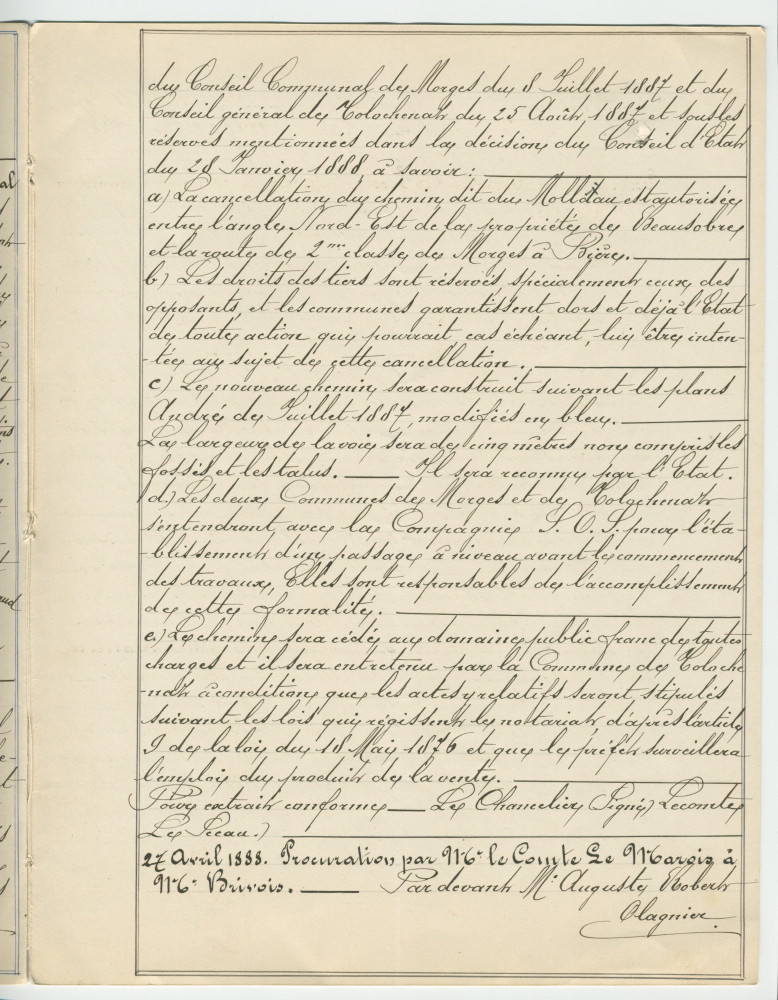 du Conseil Communal de Morges du 8 Juillet 1887 et du
Conseil général de Tolochenaz du 25 Août 1887 et sous les
réserves mentionnées dans la décision du Conseil d'Etat
du 28 Janvier 1888, à savoir :
a) La cancellation du chemin dit du Molleau est autorisée
entre l'angle Nord-Est de la propriété de Beausobre
et la route de 2me classe de Morges à Bière.
b) Les droits des tiers sont réservés, spécialement ceux des
opposants, et les communes garantissent dors et déjà l'Etat
de toute action qui pourrait, cas échéant, lui être inten-
-tée au sujet de cette cancellation.
c) Le nouveau chemin sera construit suivant les plans
André de Juillet 1887, modifiés en bleu.
La largeur de la voie sera de cinq mètres non compris les
fossés et les talus. — Il sera reconnu par l'Etat.
d.) Les deux Communes de Morges et de Tolochenaz
s'entendront avec la Compagnie S. O. S. pour l'éta-
-blissement d'un passage à niveau avant le commencement
des travaux, Elles sont responsables de l'accomplissement
de cette formalité.
e) Le chemin sera cédé au domaine public franc de toutes
charges et il sera entretenu par la Commune de Toloche
-naz à condition que les actes y relatifs seront stipulés
suivant les lois qui régissent le notariat, d'après l'article
9 de la loi du 18 Mai 1876 et que le préfet surveillera
l'emploi du produit de la vente.
Pour extrait conforme — Le Chancelier (Signé) Lecomte
Le Sceau.)
27 Avril 1888. Procuration par Mr le Comte Le Marois à
Mr Brivois. — Par devant Me Auguste Robert
Olagnier.